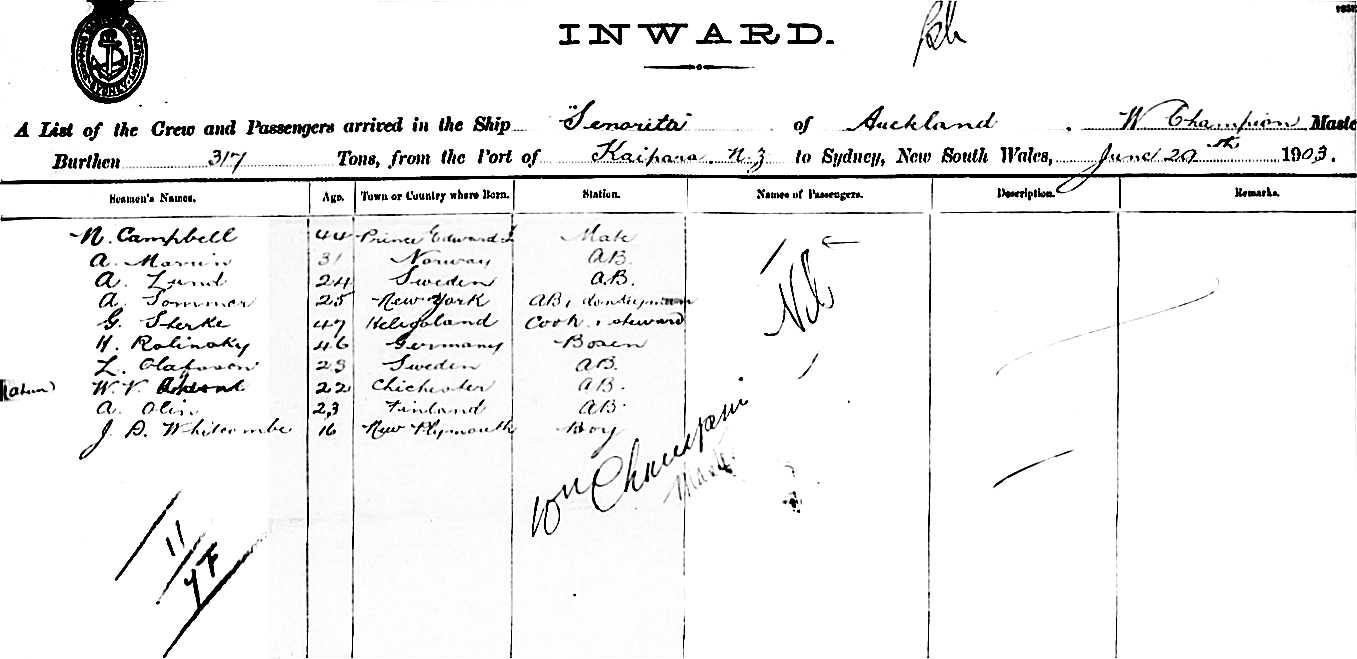 INWARD.
A List of the Crew and Passengers arrived in the Ship "Senorita" of Auckland. W Champion Maste
Burthen 317 Tons, from the Port of Kaipara N.Z to Sydney, New South Wales, June 29th 1903.
Seamen's Names. Age. Town or Country where Born. Station. Names of Passengers. Description. Remarks.
N. Campbell 44 Prince Edward I Mate
A. 31 Norway AB.
A. Lund 24 Sweden AB.
A. Sommer 25 New York AB & donkeyman
G. Sterke 47 Heligoland Cook & steward
H. Rolinsky 46 Germany Bosen
L. Olafsson 23 Sweden AB.
W. V. 22 Chichester AB.
A. Olin 23 Finland AB.
J. D. Whitcombe 16 New Plymouth Boy
Nil
Wm Champion
Master
11